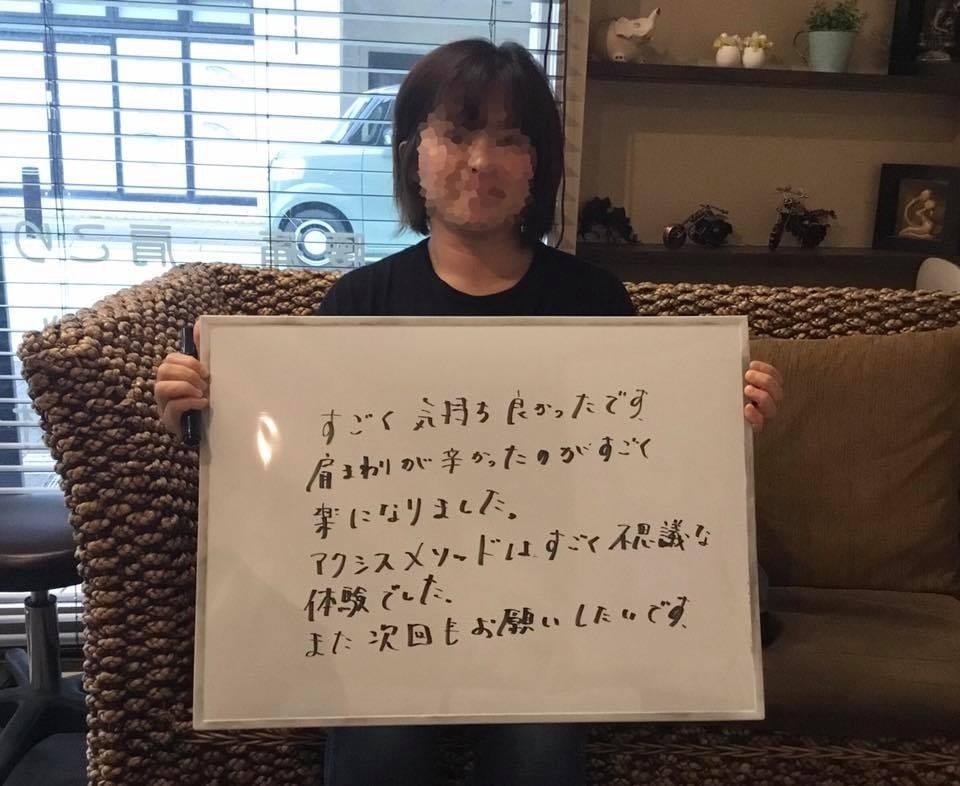 腰痛 肩こり
すごく気持ち良かったです。
肩まわりが辛かったのがすごく
楽になりました。
アクシスメソッドはすごく不思議な
体験でした。
また次回もお願いしたいです。